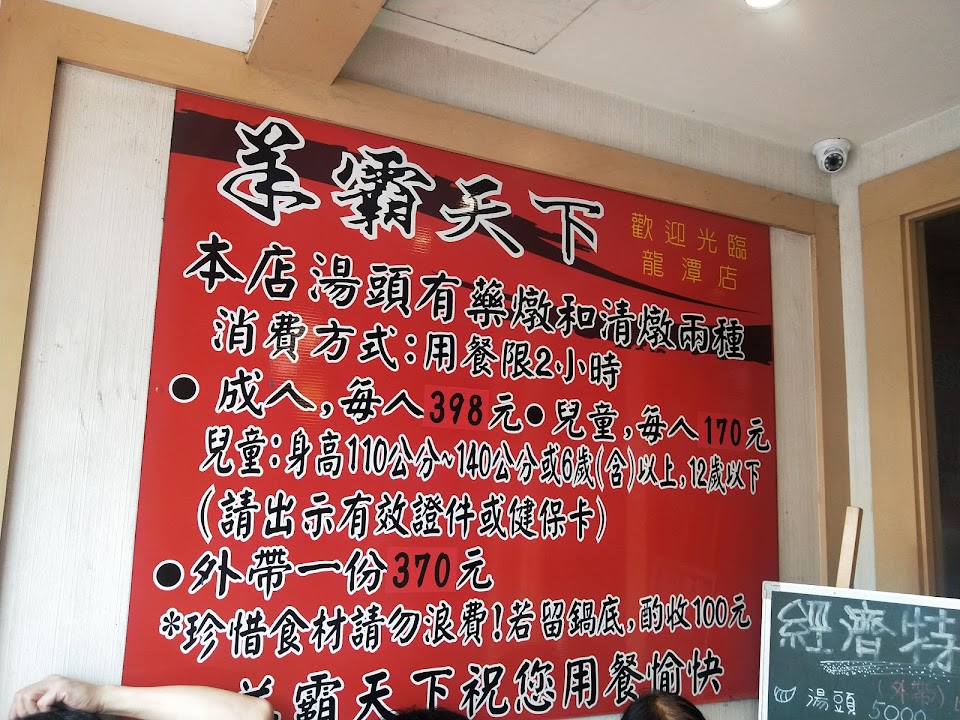 羊霸天下
歡迎光臨
龍潭店
本店湯頭有藥燉和清燉兩種
消費方式:用餐限2小時
●成人,每人398元●兒童,每人170元
兒童:身高110公分~140公分或6歲(含)以上,12歲以下
(請出示有效證件或健保卡)
●外帶一份370元
*珍惜食材請勿浪費!若留鍋底,酌收100元
羊霸天下祝您用餐愉快
經濟特
(外帶)
湯頭 5000